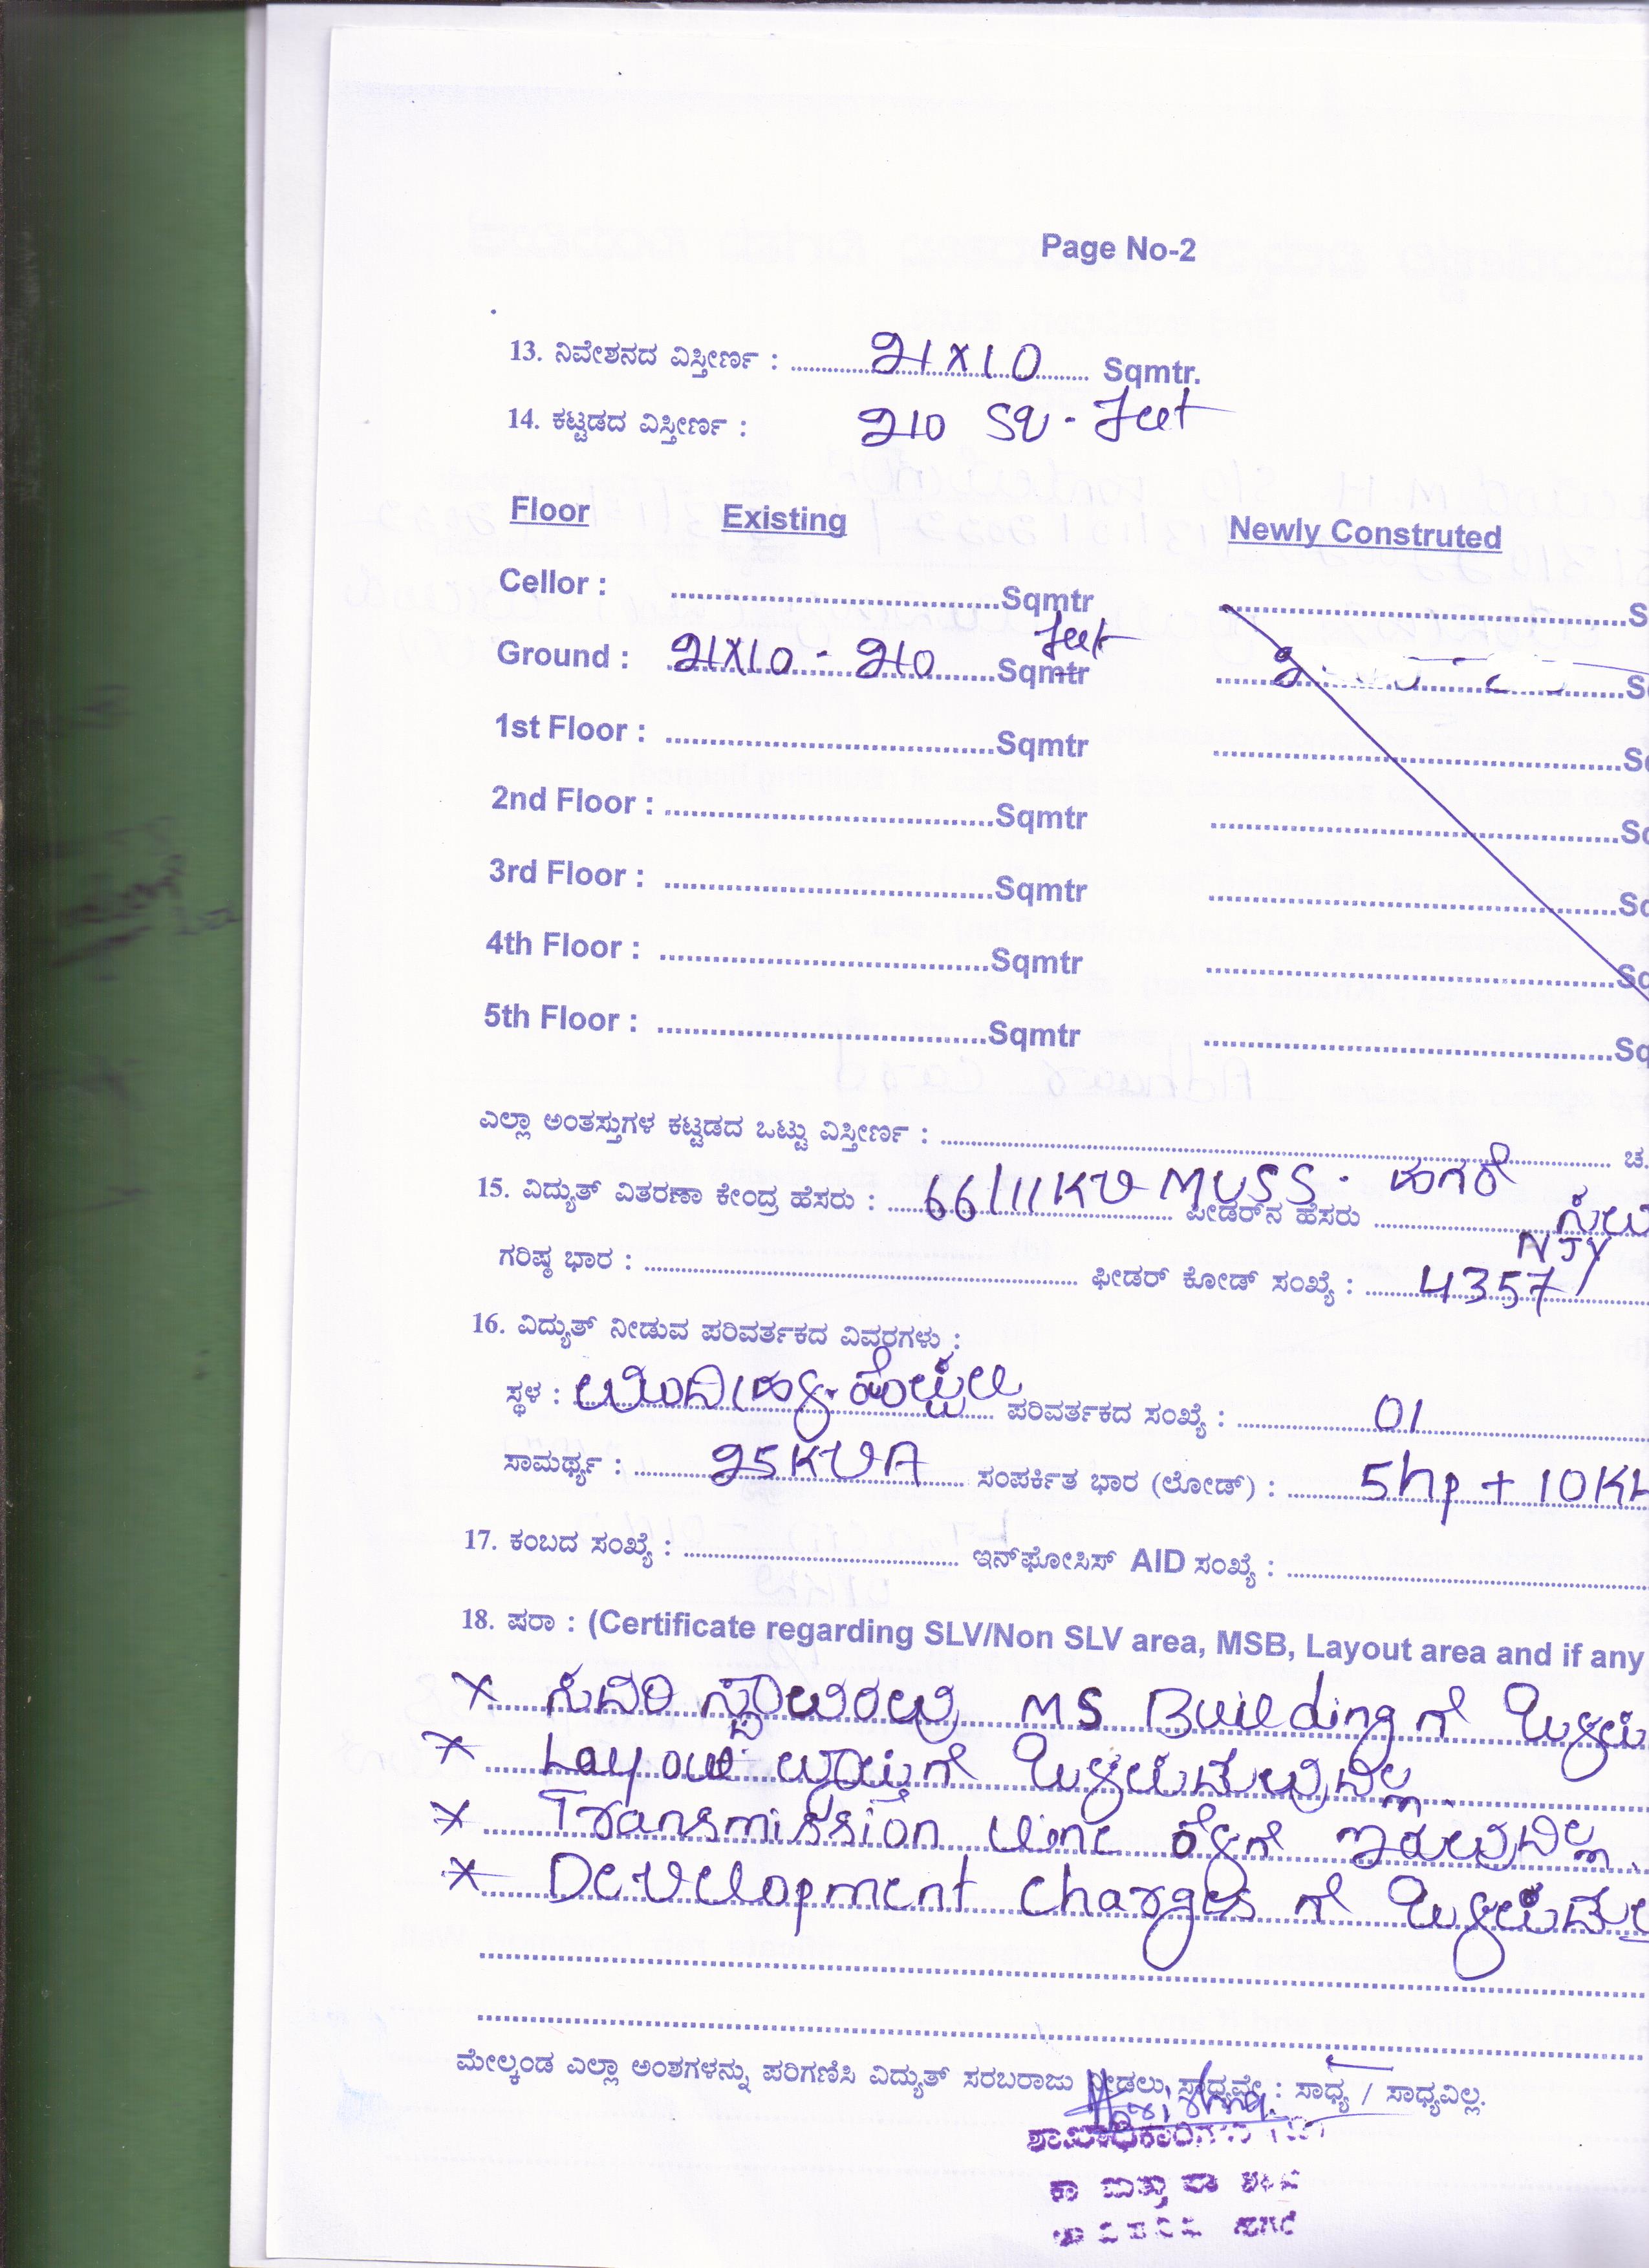 Page No-2
13. ನಿವೇಶನದ ವಿಸ್ತೀರ್ಣ : 21X10 Sqmtr.
14. ಕಟ್ಟಡದ ವಿಸ್ತೀರ್ಣ : 210 Sq - feet
Floor Existing Newly Construted
Cellor : Sqmtr
Ground : 21X10 - 210 Sqmtr feet
1st Floor : Sqmtr
2nd Floor : Sqmtr
3rd Floor : Sqmtr
4th Floor : Sqmtr
5th Floor : Sqmtr
ಎಲ್ಲಾ ಅಂತಸ್ತುಗಳ ಕಟ್ಟಡದ ಒಟ್ಟು ವಿಸ್ತೀರ್ಣ : ಚ.
15. ವಿದ್ಯುತ್ ವಿತರಣಾ ಕೇಂದ್ರ ಹೆಸರು : 66/11KV MUSS - ಹಗರೆ ಪೀಡರ್‌ನ ಹೆಸರು
NJY
ಗರಿಷ್ಠ ಭಾರ : ಫೀಡರ್ ಕೋಡ್ ಸಂಖ್ಯೆ : 4357
16. ವಿದ್ಯುತ್ ನೀಡುವ ಪರಿವರ್ತಕದ ವಿವರಗಳು :
ಸ್ಥಳ : ಪರಿವರ್ತಕದ ಸಂಖ್ಯೆ : 01
ಸಾಮರ್ಥ್ಯ : 25KVA ಸಂಪರ್ಕಿತ ಭಾರ (ಲೋಡ್) : 5hp + 10K
17. ಕಂಬದ ಸಂಖ್ಯೆ : ಇನ್‌ಫೋಸಿಸ್ AID ಸಂಖ್ಯೆ :
18. ಷರಾ : (Certificate regarding SLV/Non SLV area, MSB, Layout area and if any
* ಸದರಿ ಸ್ಥಾವರವು MS Building ಗೆ
* Layout ವ್ಯಾಪ್ತಿಗೆ ಒಳಪಡುವುದಿಲ್ಲ.
* Transmission line ಕೆಳಗೆ ಇರುವುದಿಲ್ಲ.
* Development charges ಗೆ
ಮೇಲ್ಕಂಡ ಎಲ್ಲಾ ಅಂಶಗಳನ್ನು ಪರಿಗಣಿಸಿ ವಿದ್ಯುತ್ ಸರಬರಾಜು ನೀಡಲು ಸಾಧ್ಯವೇ : ಸಾಧ್ಯ / ಸಾಧ್ಯವಿಲ್ಲ.